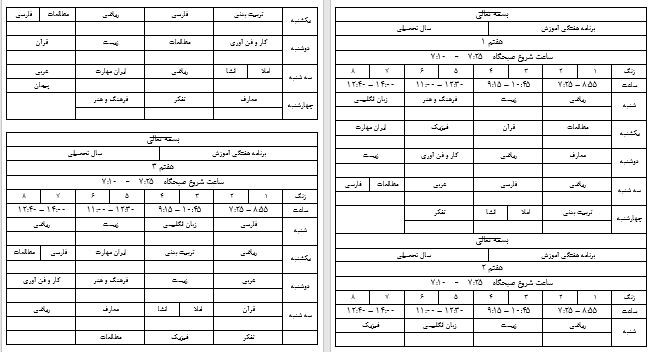 بسمه تعالی
برنامه هفتگی آموزش سال تحصیلی
هفتم ۱
ساعت شروع صبحگاه ۷:۲۵ - ۷:۱۰
زنگ ۱ ۲ ۳ ۴ ۵ ۶ ۷ ۸
ساعت ۸:۵۵ – ۷:۲۵ ۱۰:۴۵ – ۹:۱۵ ۱۲:۳۰ – ۱۱:۰۰ ۱۴:۰۰ – ۱۲:۴۰
شنبه ریاضی زیست فرهنگ و هنر زبان انگلیسی
یکشنبه مطالعات قرآن فیزیک ایران مهارت
دوشنبه معارف ریاضی کار و فن آوری زیست
سه شنبه ریاضی فارسی عربی مطالعات فارسی
چهارشنبه تربیت بدنی املا انشا تفکر
بسمه تعالی
برنامه هفتگی آموزش سال تحصیلی
هفتم ۲
ساعت شروع صبحگاه ۷:۲۵ - ۷:۱۰
زنگ ۱ ۲ ۳ ۴ ۵ ۶ ۷ ۸
ساعت ۸:۵۵ – ۷:۲۵ ۱۰:۴۵ – ۹:۱۵ ۱۲:۳۰ – ۱۱:۰۰ ۱۴:۰۰ – ۱۲:۴۰
شنبه ریاضی زیست زبان انگلیسی فیزیک
یکشنبه تربیت بدنی فارسی ریاضی مطالعات فارسی
دوشنبه کار و فن آوری مطالعات زیست قرآن
سه شنبه املا انشا ریاضی ایران مهارت عربی
پیمان
چهارشنبه معارف تفکر فرهنگ و هنر
بسمه تعالی
برنامه هفتگی آموزش سال تحصیلی
هفتم ۳
ساعت شروع صبحگاه ۷:۲۵ - ۷:۱۰
زنگ ۱ ۲ ۳ ۴ ۵ ۶ ۷ ۸
ساعت ۸:۵۵ – ۷:۲۵ ۱۰:۴۵ – ۹:۱۵ ۱۲:۳۰ – ۱۱:۰۰ ۱۴:۰۰ – ۱۲:۴۰
شنبه فارسی زبان انگلیسی زیست ریاضی
یکشنبه ریاضی تربیت بدنی ایران مهارت فارسی مطالعات
دوشنبه عربی زیست فرهنگ و هنر کار و فن آوری
سه شنبه قرآن املا انشا معارف ریاضی
تفکر فیزیک مطالعات